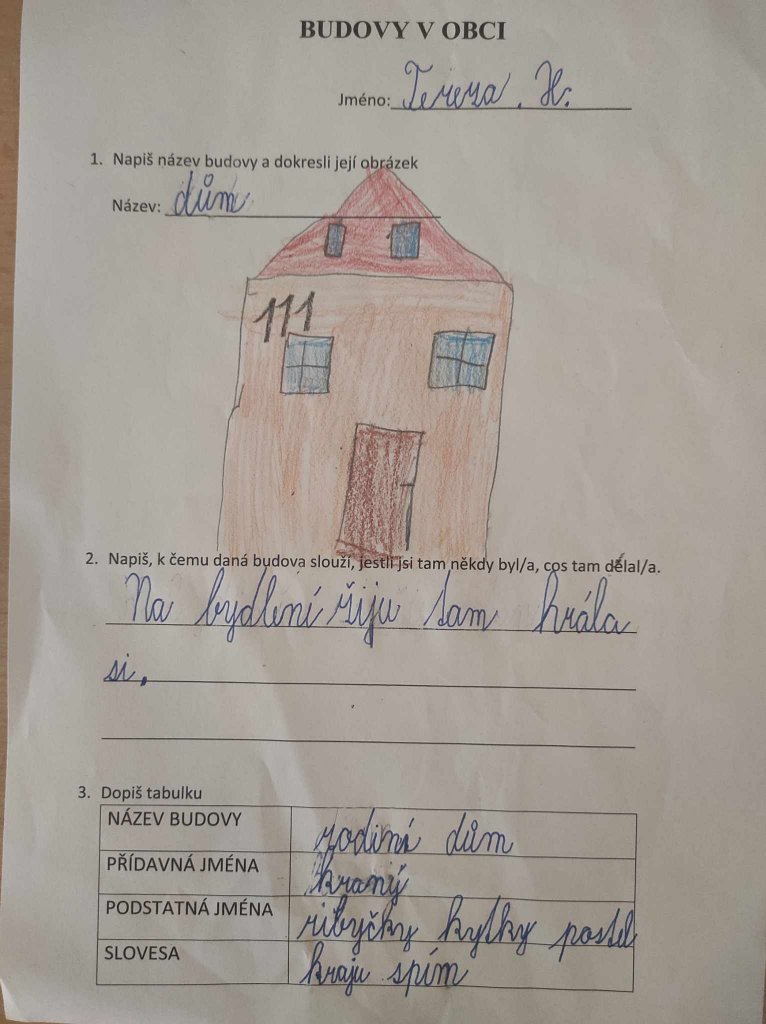 BUDOVY V OBCI
Jméno: Tereza. H.
1. Napiš název budovy a dokresli její obrázek
Název: dům
111
2. Napiš, k čemu daná budova slouží, jestli jsi tam někdy byl/a, cos tam dělal/a.
Na bydlení žiju tam hrála
si.
3. Dopiš tabulku
NÁZEV BUDOVY rodiní dům
PŘÍDAVNÁ JMÉNA
PODSTATNÁ JMÉNA ribyčky kytky postel
SLOVESA hraju spím